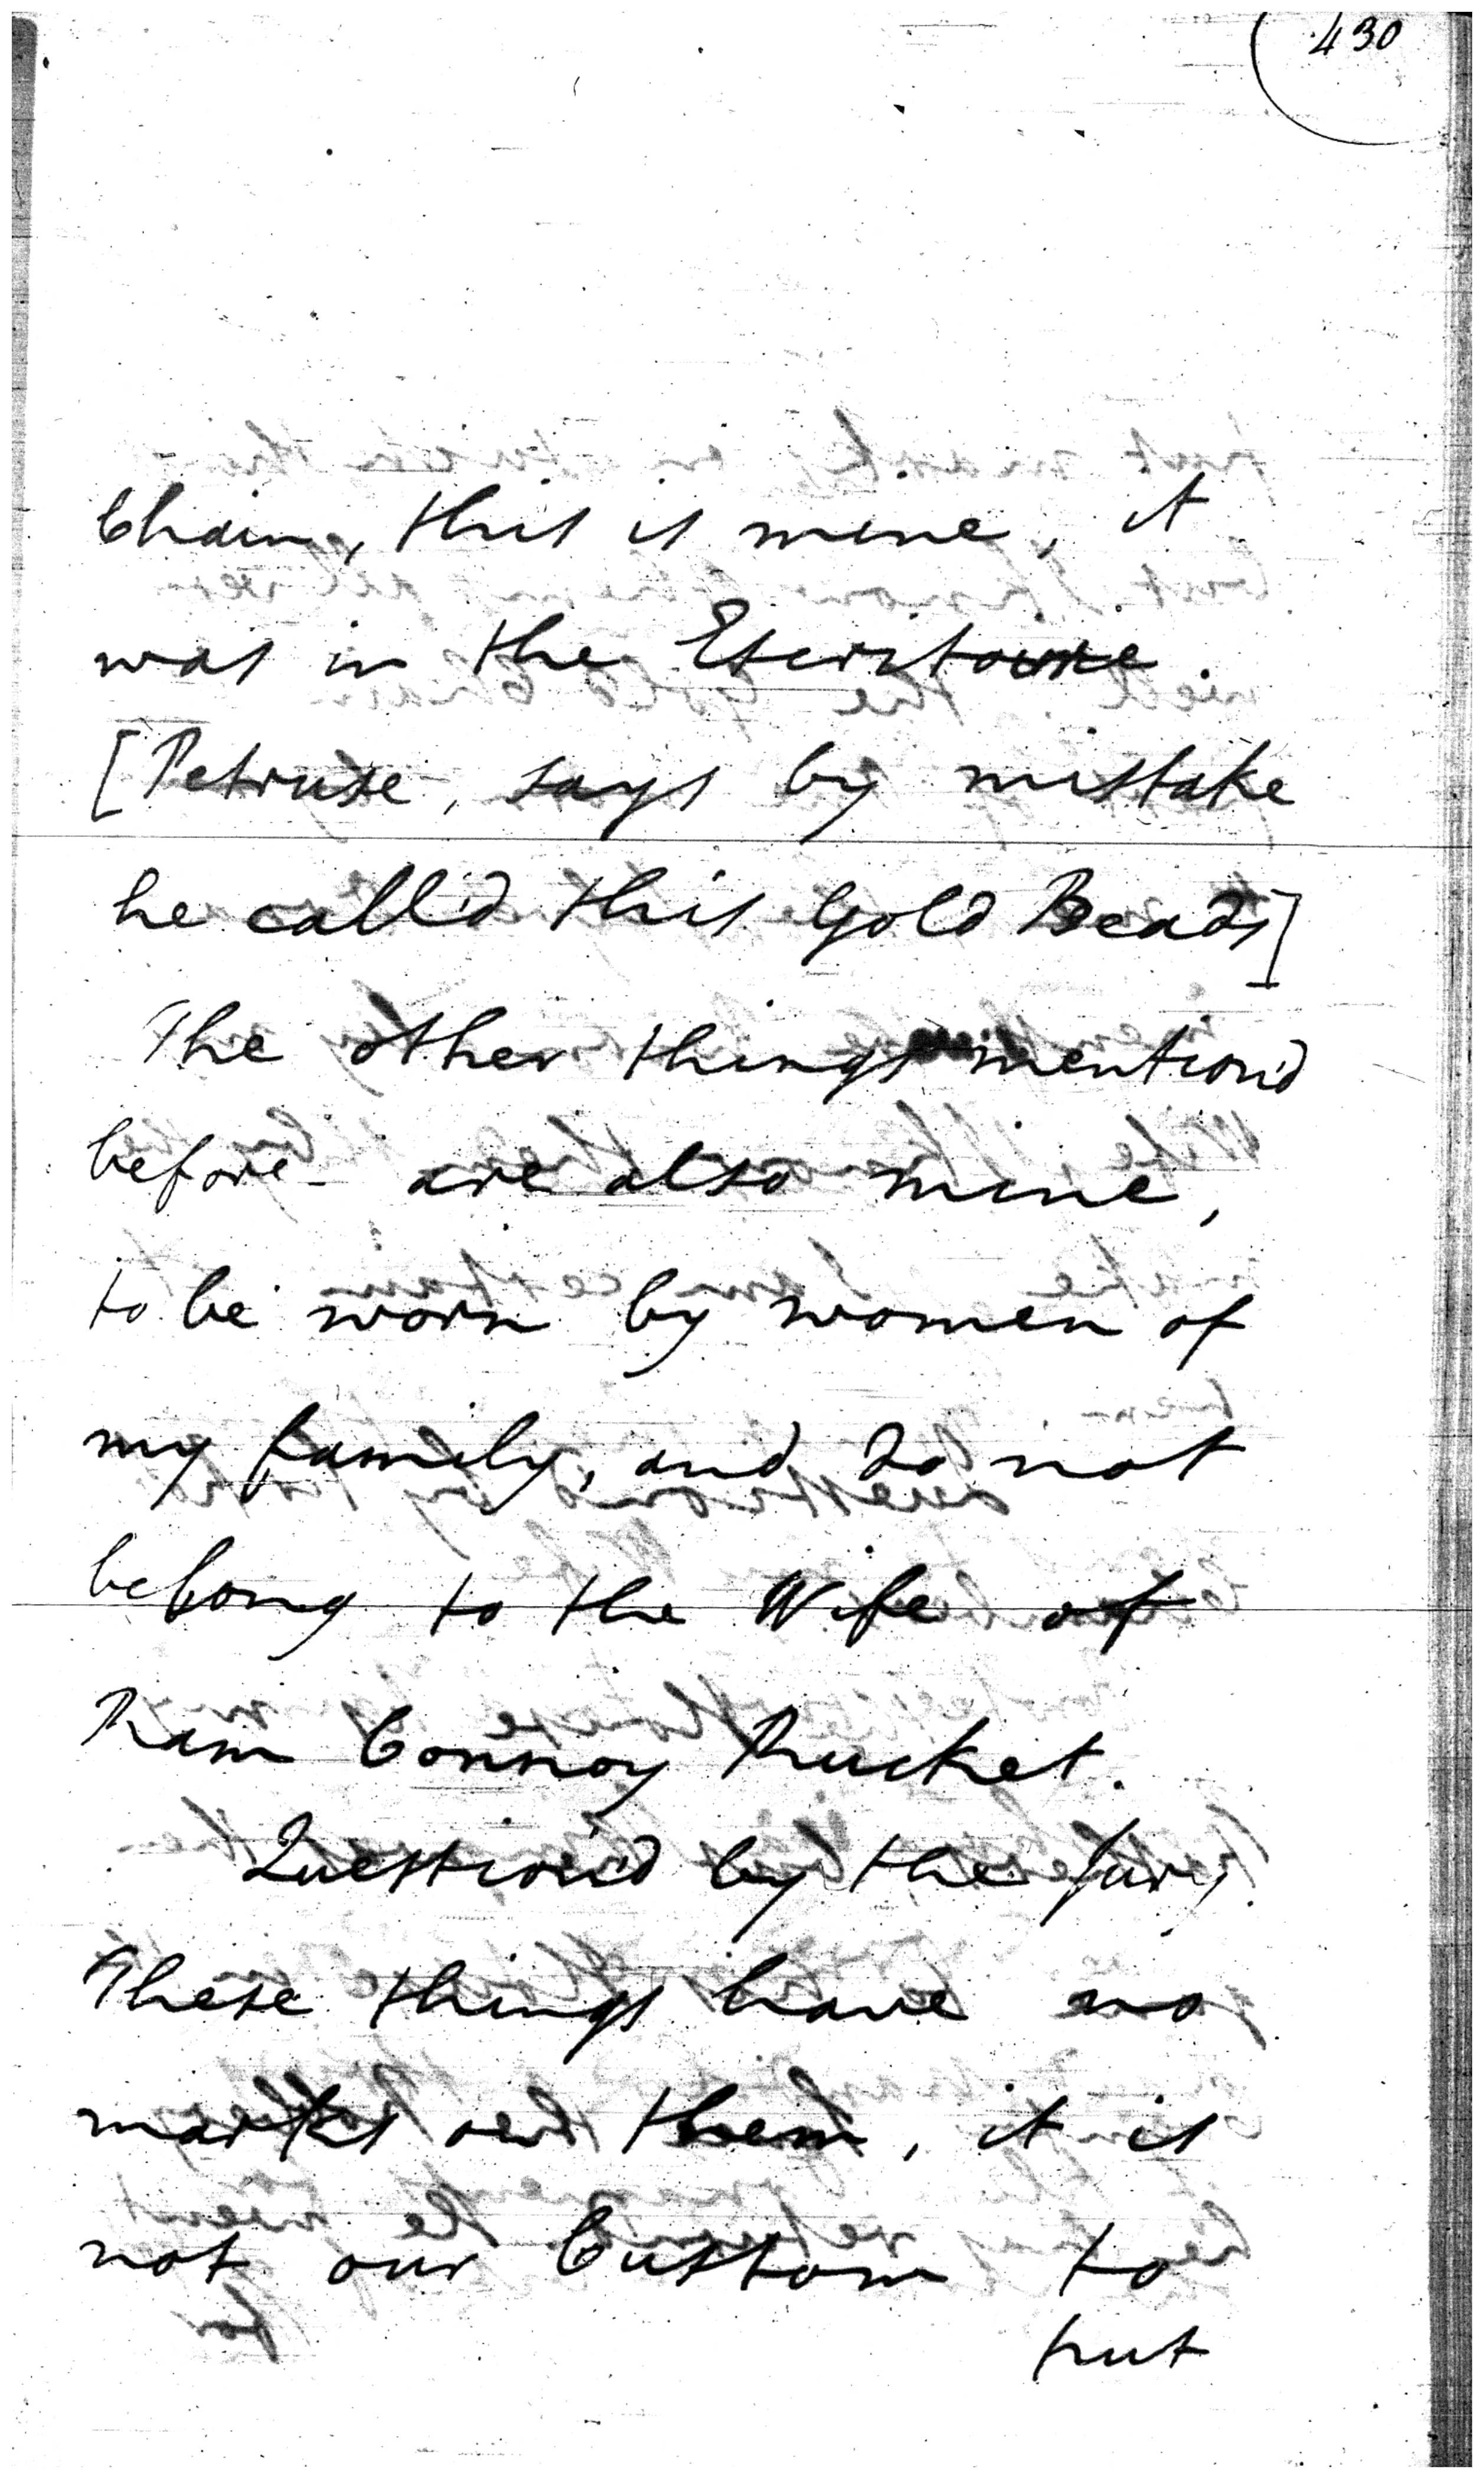 430
Chain, this is mine, it
was in the Escritoire
[Petruse, says by mistake
he call'd this Gold Beads]
The other things mention'd
before are also mine,
to be worn by women of
my family, and do not
belong to the Wife of
Ram Connoy Rucket.
Question'd by the Jury
These things have no
marks on them, it is
not our Custom to
put